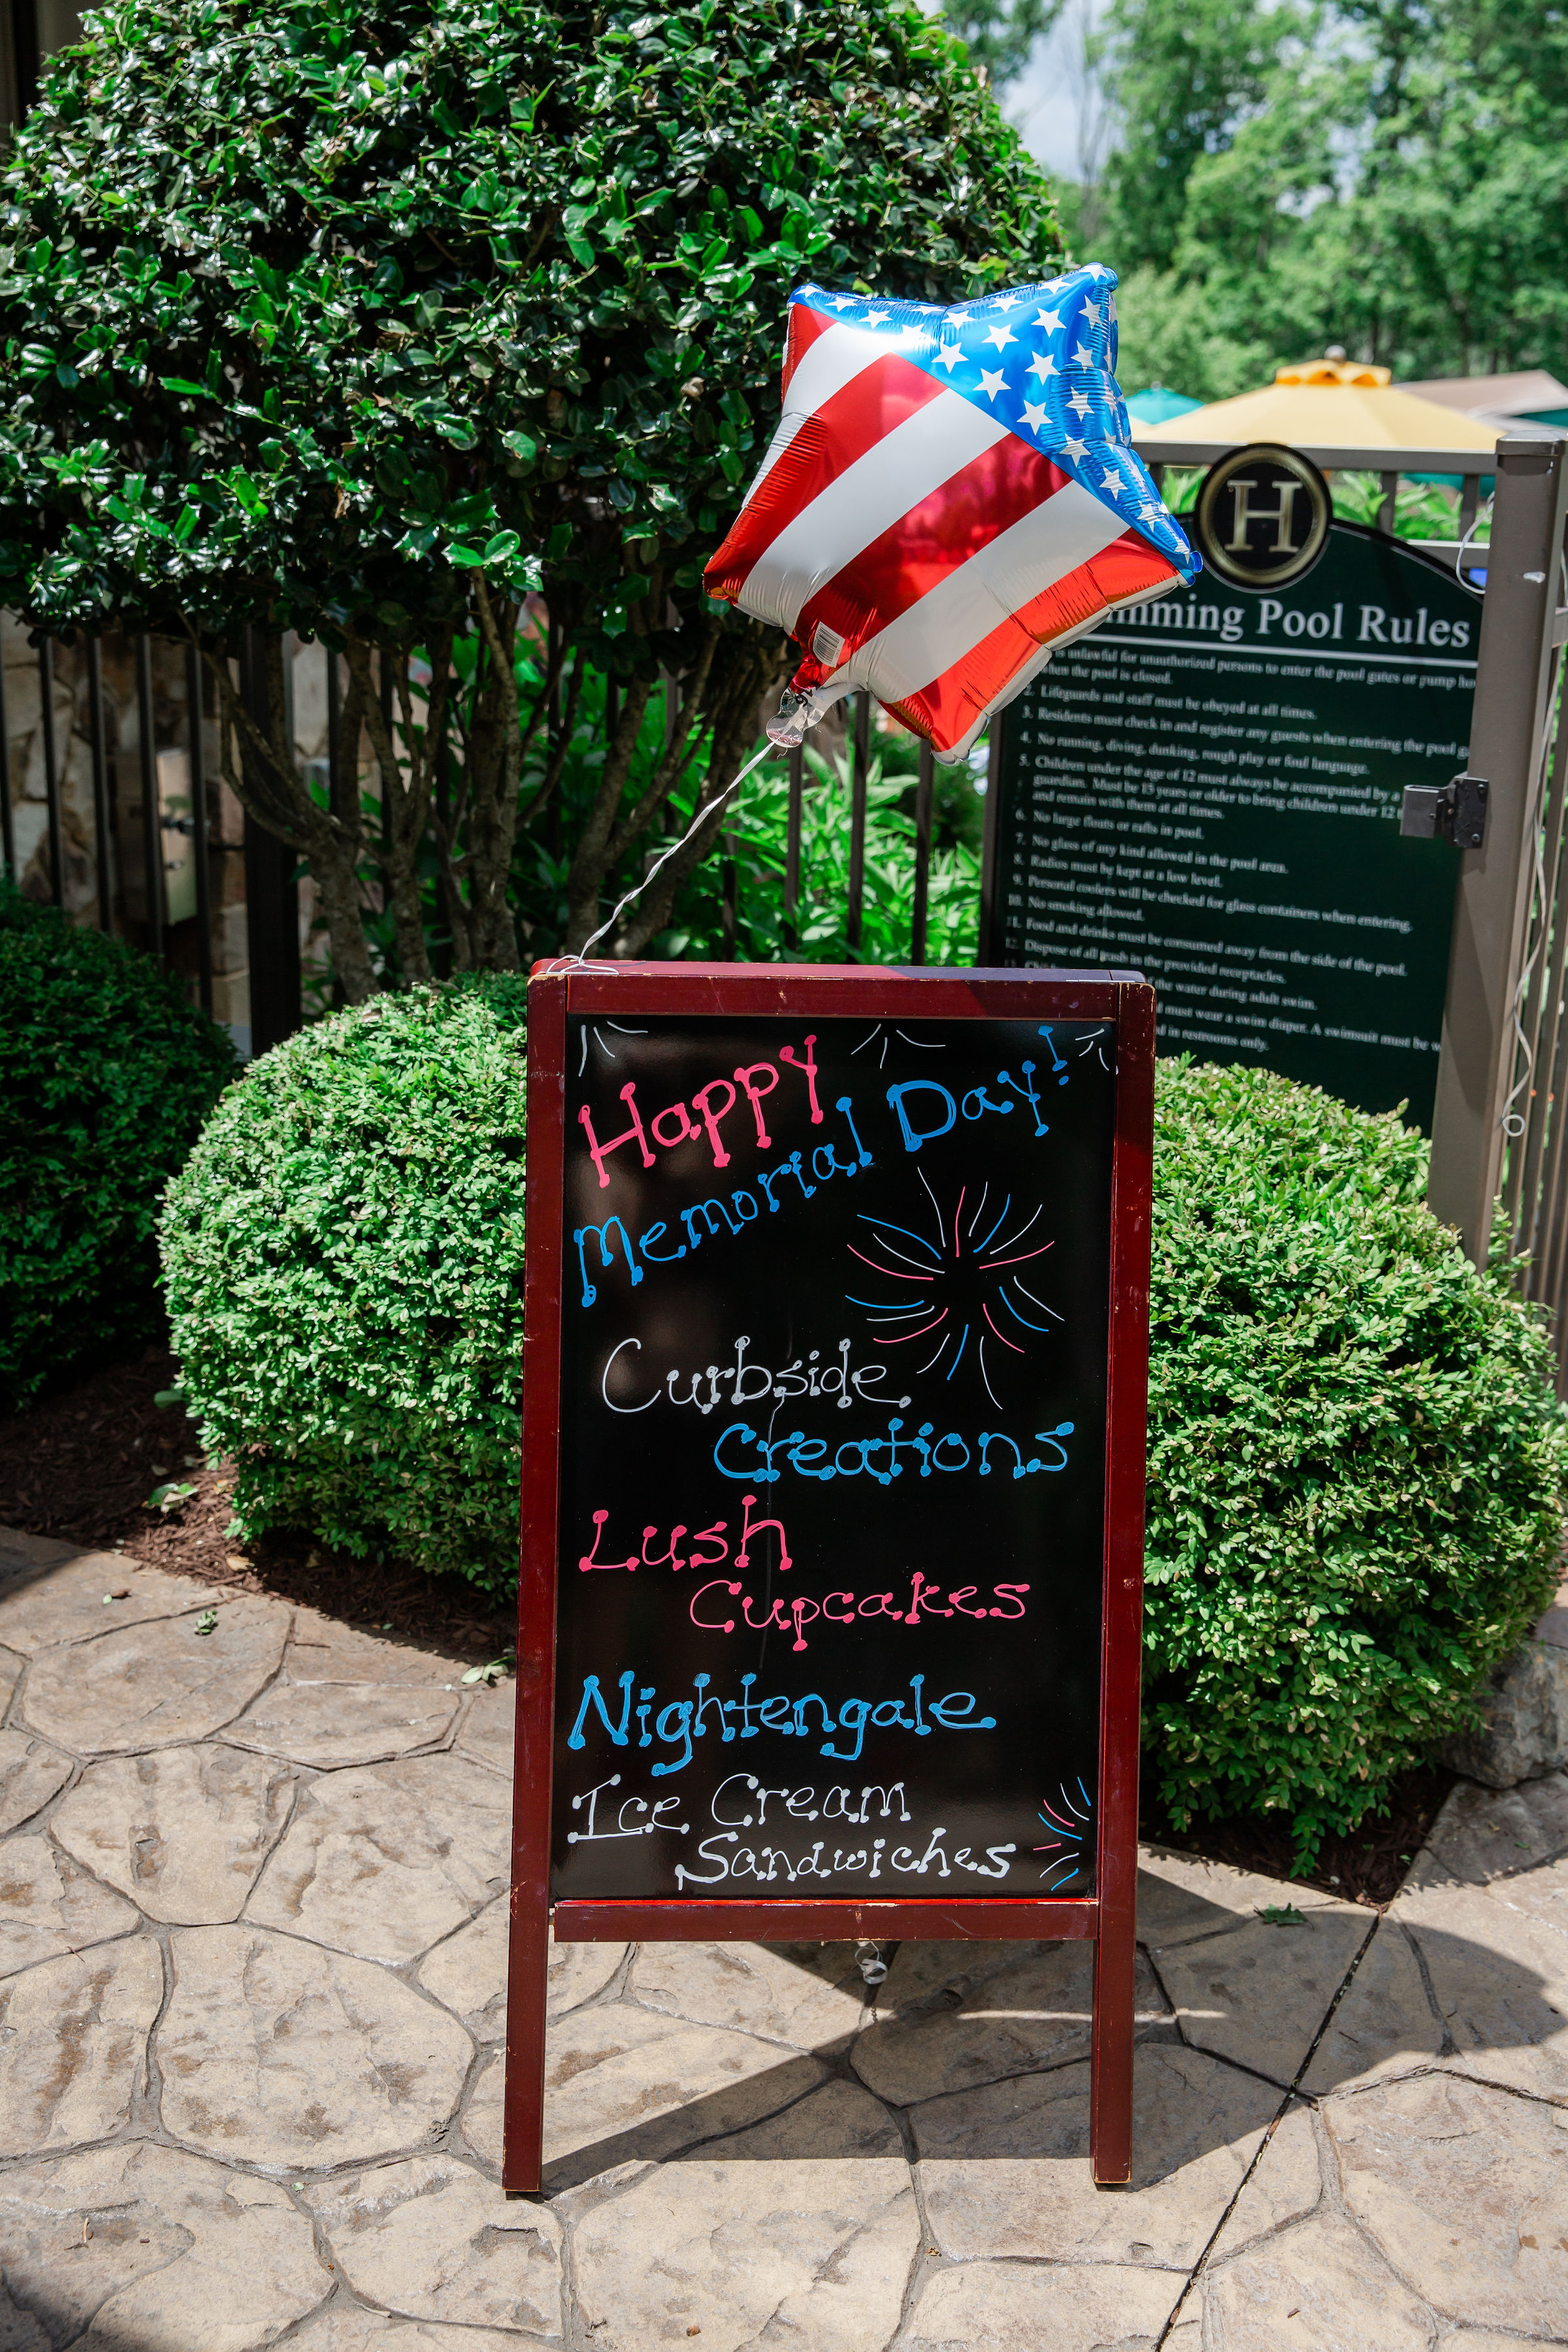 Happy
Memorial Day!
Curbside
Creations
Lush
Cupcakes
Nightengale
Ice Cream
Sandwiches
H
mming Pool Rules
is unlawful for unauthorized persons to enter the pool gates or pump
when the pool is closed.
2. Lifeguards and staff must be obeyed at all times.
3. Residents must check in and register any guests when entering the pool
4. No running, diving, dunking, rough play or foul language.
5. Children under the age of 12 must always be accompanied by a
guardian. Must be 15 years or older to bring children under 12
and remain with them at all times.
6. No large floats or rafts in pool.
7. No glass of any kind allowed in the pool area.
8. Radios must be kept at a low level.
9. Personal coolers will be checked for glass containers when entering.
10. No smoking allowed.
11. Food and drinks must be consumed away from the side of the pool.
12. Dispose of all trash in the provided receptacles.
the water during adult swim.
must wear a swim diaper. A swimsuit must be
in restrooms only.